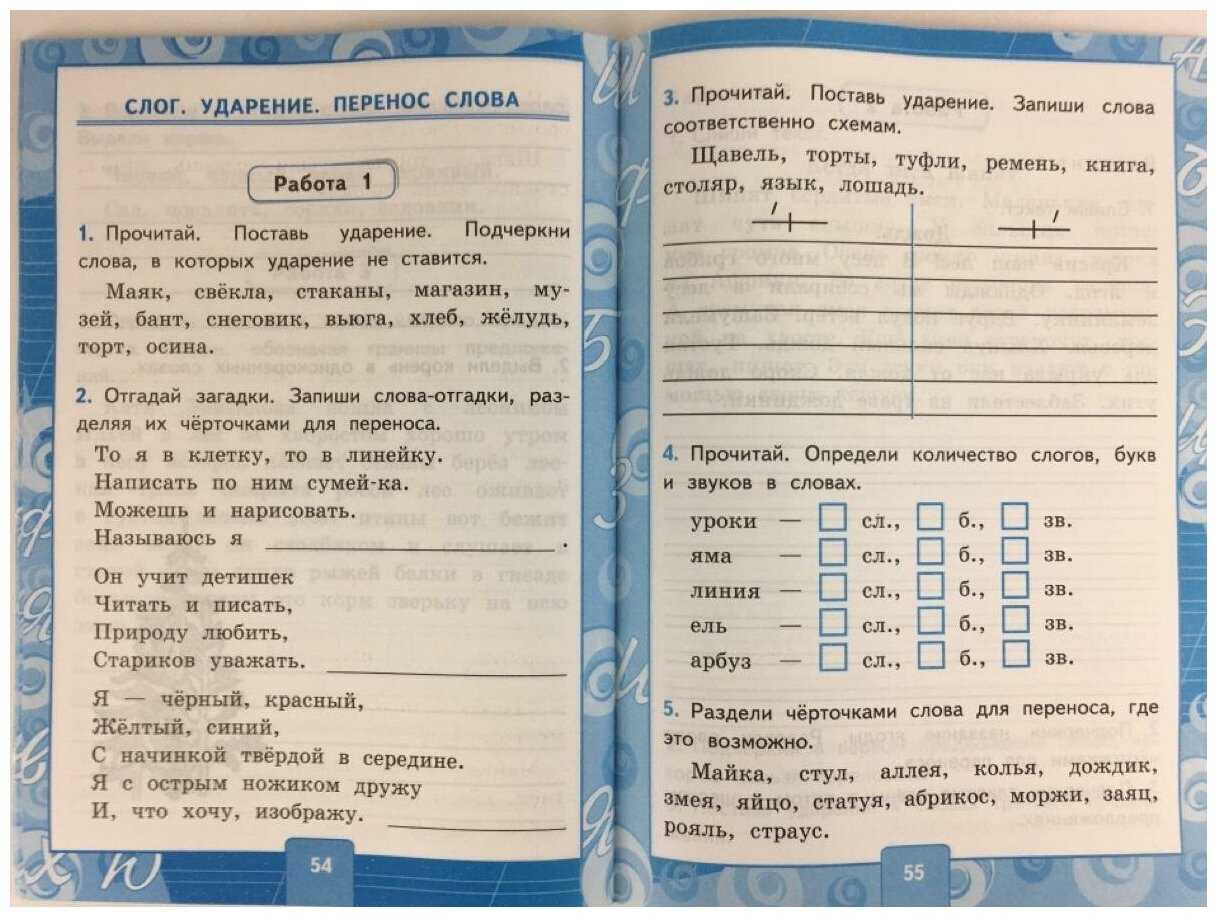 СЛОГ. УДАРЕНИЕ. ПЕРЕНОС СЛОВА
Работа 1
1. Прочитай. Поставь ударение. Подчеркни
слова, в которых ударение не ставится.
Маяк, свёкла, стаканы, магазин, му-
зей, бант, снеговик, вьюга, хлеб, жёлудь,
торт, осина.
2. Отгадай загадки. Запиши слова-отгадки, раз-
деляя их чёрточками для переноса.
То я в клетку, то в линейку.
Написать по ним сумей-ка.
Можешь и нарисовать.
Называюсь я .
Он учит детишек
Читать и писать,
Природу любить,
Стариков уважать.
Я — чёрный, красный,
Жёлтый, синий,
С начинкой твёрдой в середине.
Я с острым ножиком дружу
И, что хочу, изображу.
54
3. Прочитай. Поставь ударение. Запиши слова
соответственно схемам.
Щавель, торты, туфли, ремень, книга,
столяр, язык, лошадь.
4. Прочитай. Определи количество слогов, букв
и звуков в словах.
уроки — сл., б., зв.
яма — сл., б., зв.
линия — сл., б., зв.
ель — сл., б., зв.
арбуз — сл., б., зв.
5. Раздели чёрточками слова для переноса, где
это возможно.
Майка, стул, аллея, колья, дождик,
змея, яйцо, статуя, абрикос, моржи, заяц,
рояль, страус.
55